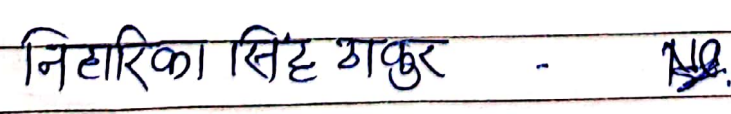 निहारिका सिंह ठाकुर -